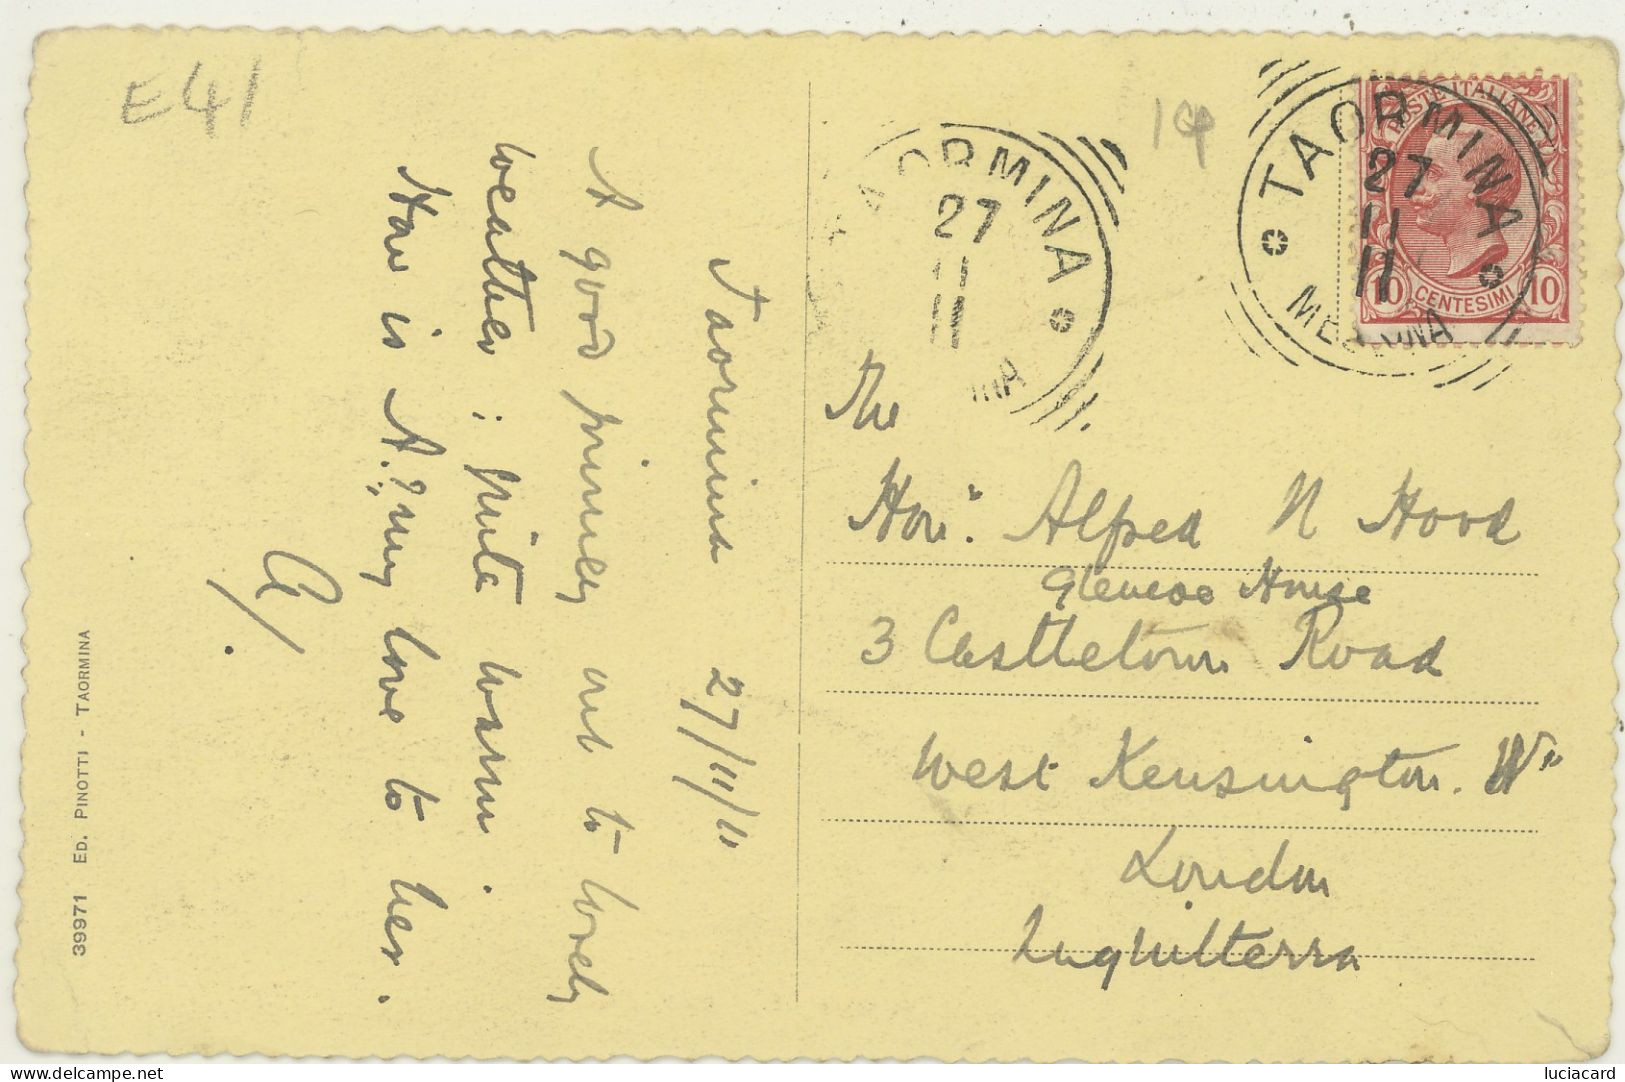 E41
19
Taormina 27/11/11
A good journey out to lovely
weather; quite warm.
How is A.? my love to her.
A/.
39971 ED. PINOTTI - TAORMINA
TAORMINA
27
11
11
TAORMINA
27
11
11
MESSINA
POSTE ITALIANE
10 CENTESIMI 10
The
Hon: Alfred N Hood
Glencoe House
3 Castletown Road
West Kensington. W.
London
Inghilterra
luciacard